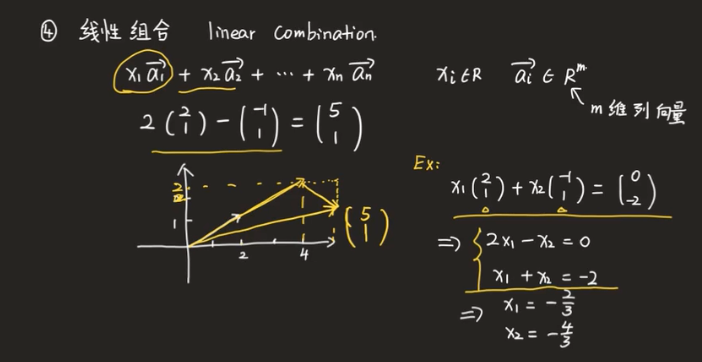 ④ 线性组合 linear combination.
x₁a₁⃗ + x₂a₂⃗ + ⋯ + xₙaₙ⃗ xᵢ∈R aᵢ⃗ ∈ Rᵐ
m维列向量
2(2 1) − (−1 1) = (5 1)
2
1
2 4
(5 1)
Ex:
x₁(2 1) + x₂(−1 1) = (0 −2)
⇒ { 2x₁ − x₂ = 0
x₁ + x₂ = −2
⇒ x₁ = −2/3
x₂ = −4/3